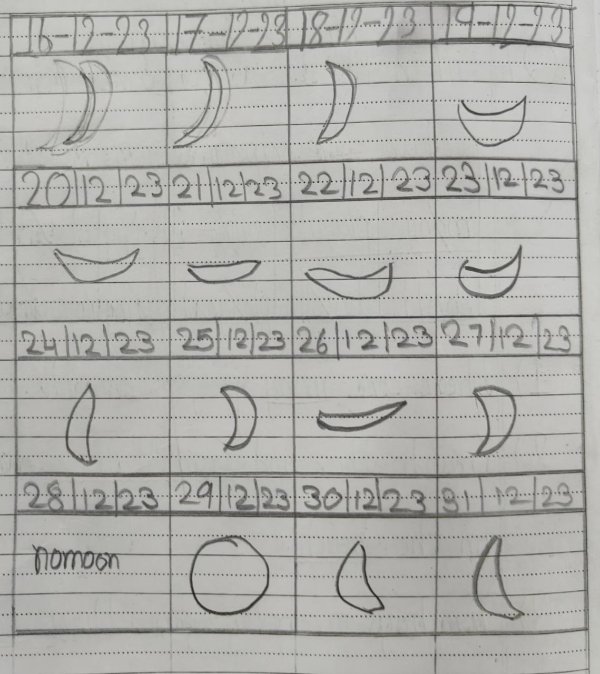 16-12-23 17-12-23 18-12-23 19-12-23
20/12/23 21/12/23 22/12/23 23/12/23
24/12/23 25/12/23 26/12/23 27/12/23
28/12/23 29/12/23 30/12/23 31/12/23
nomoon